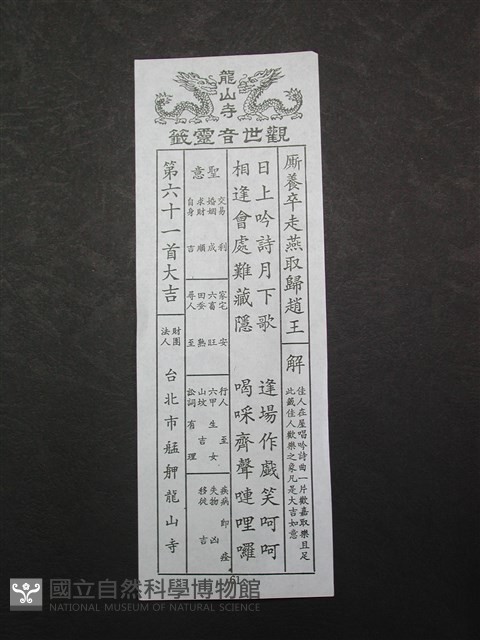 龍山寺
觀世音靈籤
廝養卒走燕取歸趙王
解
佳人在屋唱吟詩曲一片歡嘉取樂且足
此籤佳人歡樂之象凡是大吉如意
日上吟詩月下歌
逢場作戲笑呵呵
相逢會處難藏隱
喝采齊聲嗹哩囉
聖意
交易 利
婚姻 成
求財 順
自身 吉
家宅 安
六畜 旺
田蚕 熟
尋人 至
行人 至
六甲 生女
山墳 吉
訟詞 有理
疾病 即痊
失物 凶
移徙 吉
第六十一首大吉
財團法人
台北市艋舺龍山寺
61
國立自然科學博物館
NATIONAL MUSEUM OF NATURAL SCIENCE